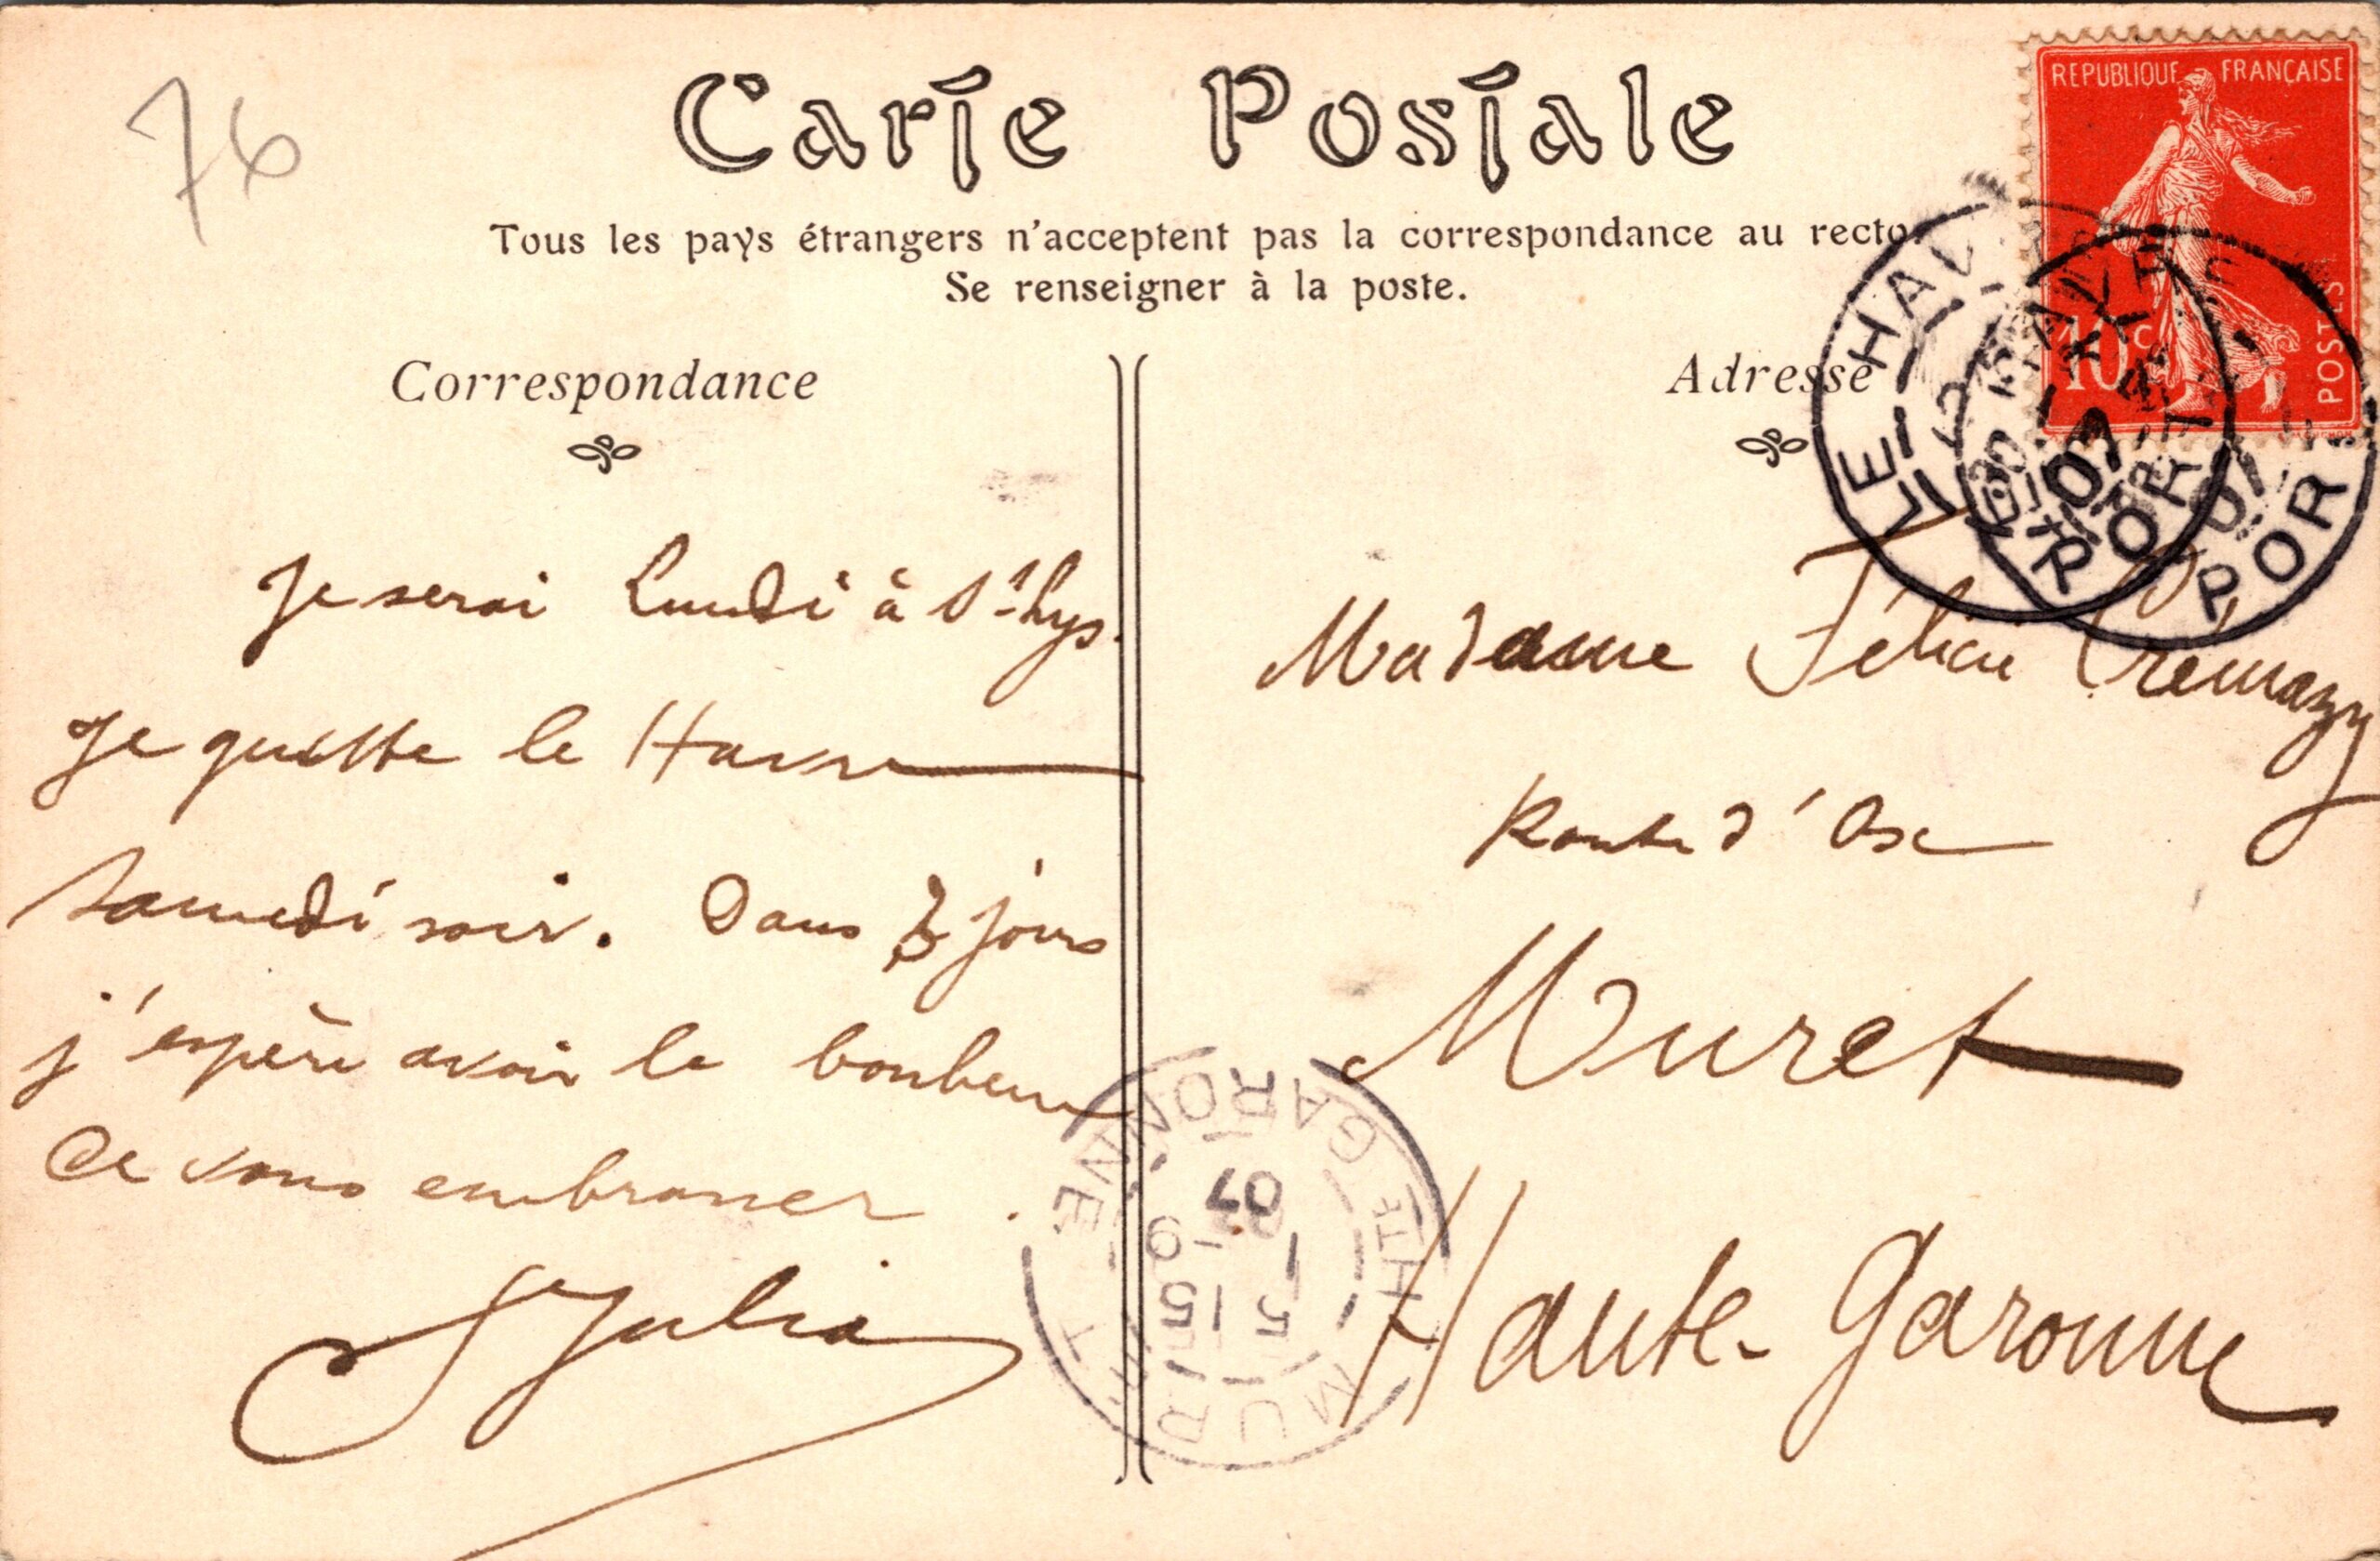 76
Carte Postale
REPUBLIQUE FRANÇAISE
10c
POSTES
Tous les pays étrangers n'acceptent pas la correspondance au recto.
Se renseigner à la poste.
Correspondance
Adresse
LE HAVRE
PORT
07
LE HAVRE
POR
07
Je serai Lundi à St-Lys.
Je quitte le Havre
Samedi soir. Dans jours
j'espère avoir le bonheur
de vous embrasser.
Julia
Madame Félicie Prémazy
Route d'Ox
Muret
Haute-Garonne
MURET
HTE GARONNE
9
15
5
07